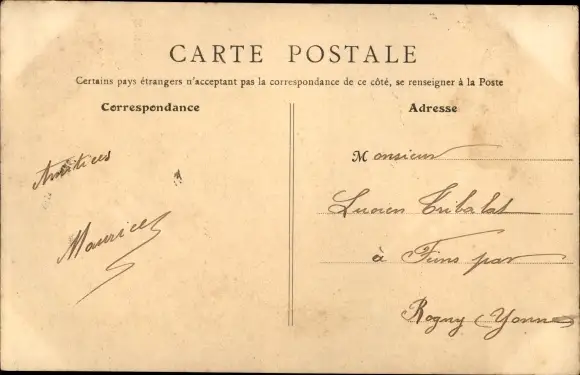 CARTE POSTALE
Certains pays étrangers n'acceptant pas la correspondance de ce côté, se renseigner à la Poste
Correspondance
Adresse
Amitiées
Maurice
Monsieur
Lucien Tribalat
à par
Rogny (Yonne)